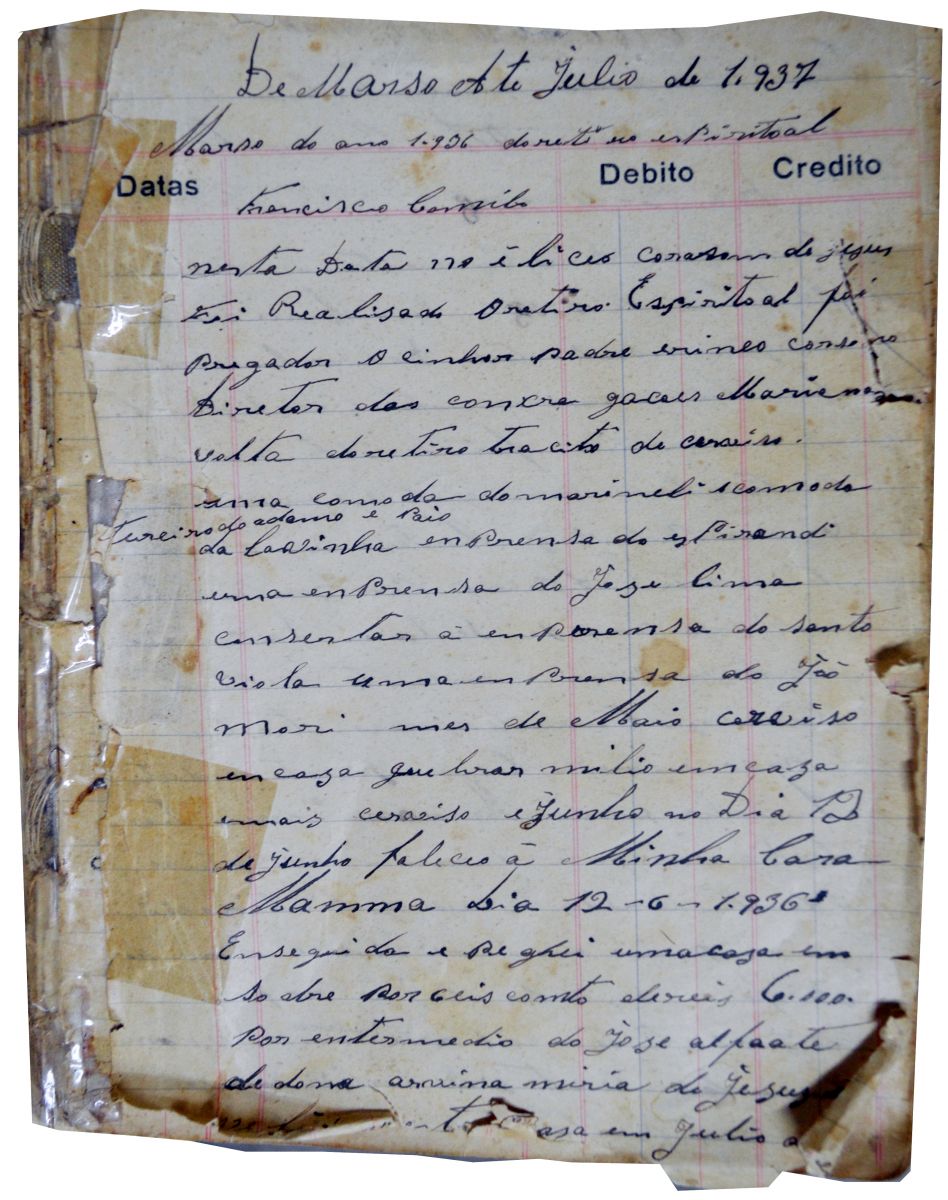 De Marso Ate Julio de 1.937
Marso do ano 1.936 doretiro espiritoal
Datas Debito Credito
Francisco Camilo
nesta Data no é liceo corasom de jesus
Foi Realisado Oretiro Espiritoal foi
Pregador O cinhor padre erineo
Diretor das Maria
volta doretiro de
uma comoda domarineli icomoda
Tureiro do adamo e Paio
da enPrensa do
uma enPrensa do Joze lima
consertar á enPerensa do santo
viola uma enPrensa do Jão
Mori mes de Maio cerviso
en caza quebrar milio em caza
emais cerviso é Junho no Dia 12
de Junho faleceo á Minha Cara
Mamma Dia 12-6-1.936
Enseguida e Peghei uma caza em
So dre Por ceis comto dereis 6.000.
Por entermedio do Joze alfaate
de dona arvina miria de Jezus
caza em Julio a